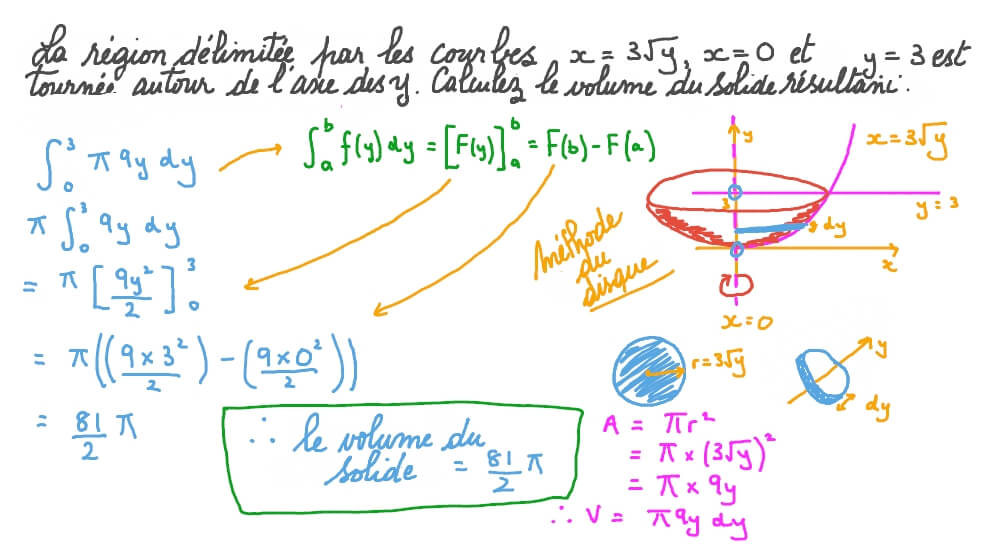 La région délimitée par les courbes x = 3√y, x = 0 et y = 3 est
tournée autour de l'axe des y. Calculez le volume du solide résultant.
∫₀³ π 9y dy
∫ₐᵇ f(y) dy = [F(y)]ₐᵇ = F(b) - F(a)
π ∫₀³ 9y dy
= π [9y²/2]₀³
= π((9 × 3²/2) - (9 × 0²/2))
= 81/2 π
∴ le volume du
solide = 81/2 π
méthode
du
disque
y
x = 3√y
3
y = 3
dy
x
x = 0
r = 3√y
y
dy
A = πr²
= π × (3√y)²
= π × 9y
∴ V = π 9y dy